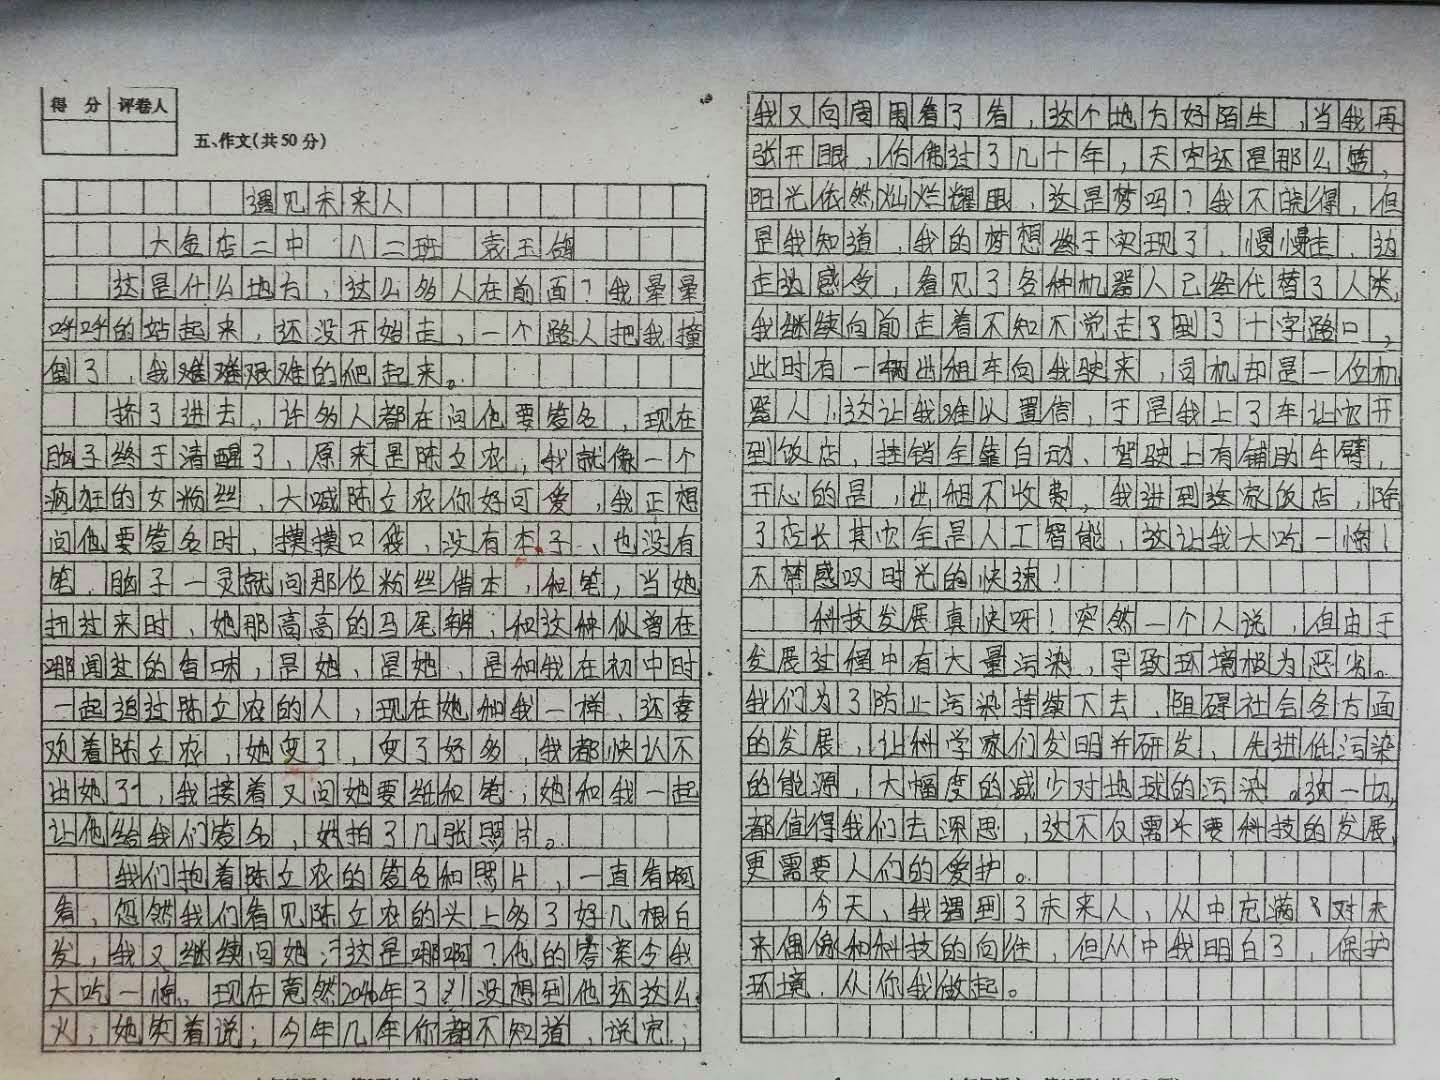 得 分 评卷人
五、作文(共50分)
遇见未来人
大金店二中 八二班 袁玉鸽
这是什么地方，这么多人在前面？我晕晕
呼呼的站起来，还没开始走，一个路人把我撞
倒了，我难难艰难的爬起来。
挤了进去，许多人都在问他要签名，现在
脑子终于清醒了，原来是陈立农，我就像一个
疯狂的女粉丝，大喊陈立农你好可爱，我正想
问他要签名时，摸摸口袋，没有本子、也没有
笔，脑子一灵就问那位粉丝借本，和笔，当她
扭过来时，她那高高的马尾辫，和这种似曾在
哪闻过的香味，是她，是她，是和我在初中时
一起追过陈立农的人，现在她和我一样，还喜
欢着陈立农，她变了，变了好多，我都快认不
出她了，我接着又问她要纸和笔，她和我一起
让他给我们签名，她拍了几张照片。
我们抱着陈立农的签名和照片，一直看啊
看，忽然我们看见陈立农的头上多了好几根白
发，我又继续问她：这是哪啊？他的答案令我
大吃一惊。现在竟然2040年了！没想到他还这么
火，她笑着说；今年几年你都不知道，说完，
我又向周围看了看，这个地方好陌生，当我再
张开眼，仿佛过了几十年，天空还是那么蓝，
阳光依然灿烂耀眼，这是梦吗？我不晓得，但
是我知道，我的梦想终于实现了，慢慢走，边
走边感受，看见了各种机器人已经代替了人类，
我继续向前走着不知不觉走到了十字路口，
此时有一辆出租车向我驶来，司机却是一位机
器人！这让我难以置信，于是我上了车让它开
到饭店，挂铛全靠自动、驾驶上有铺助牛臂，
开心的是，出租不收费，我进到这家饭店，除
了店长其它全是人工智能，这让我大吃一惊！
不禁感叹时光的快速！
科技发展真快呀！突然一个人说，但由于
发展过程中有大量污染，导致环境极为恶劣。
我们为了防止污染持续下去，阻碍社会各方面
的发展，让科学家们发明并研发，先进低污染
的能源，大幅度的减少对地球的污染。这一切，
都值得我们去深思，这不仅需要科技的发展，
更需要人们的爱护。
今天，我遇到了未来人，从中充满了对未
来偶像和科技的向往，但从中我明白了，保护
环境，从你我做起。